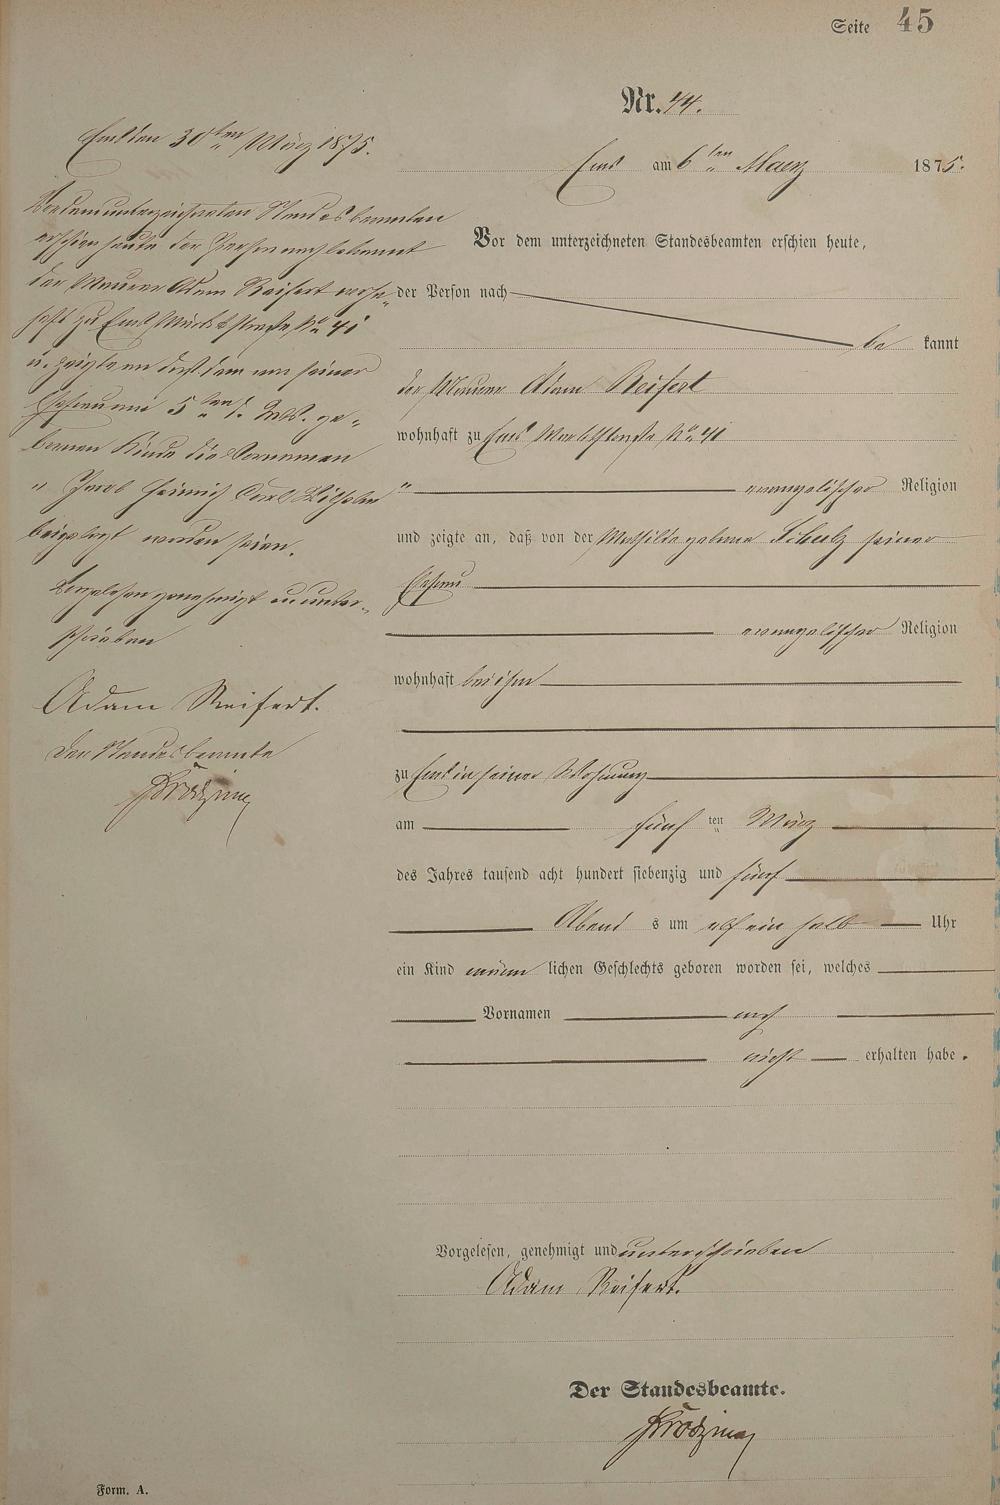 Seite 45
Nr. 44.
Ems am 6ten Maerz 1875.
Vor dem unterzeichneten Standesbeamten erschien heute,
der Person nach
bekannt
der Maurer Adam Reifert
wohnhaft zu Ems No. 41
evangelischer Religion
und zeigte an, daß von der Mathilde geborne Schulz seiner
Ehefrau
evangelischer Religion
wohnhaft bei ihm
zu Ems in seiner Wohnung
am fünf ten März
des Jahres tausend acht hundert siebenzig und fünf
Abend s um elf ein halb Uhr
ein Kind männ lichen Geschlechts geboren worden sei, welches
Vornamen noch
nicht erhalten habe.
Vorgelesen, genehmigt und unterschrieben
Adam Reifert.
Der Standesbeamte.
Ems den 30ten März 1875.
Vor dem unterzeichneten Standesbeamten
erschien heute der Person nach bekannt
der Maurer Adam Reifert wohn-
haft zu Ems No. 41
u. zeigte an daß dem von seiner
Ehefrau am 5ten d. Mts. ge-
bornen Kinde die Vornamen
" Jacob Heinrich Carl Wilhelm "
beigelegt worden seien.
Vorgelesen genehmigt u unter-
schrieben
Adam Reifert.
Der Standesbeamte
Form. A.